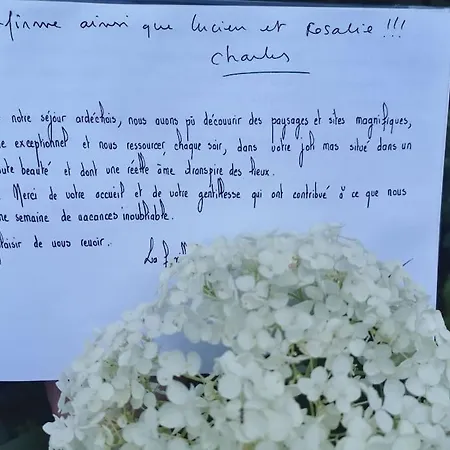 firme ainsi que Lucien et Rosalie !!!
Charles
notre séjour ardéchois, nous avons pû découvrir des paysages et sites magnifiques,
e exceptionnel et nous ressourcer chaque soir, dans votre joli mas situé dans un
oute beauté et dont une réelle âme transpire des lieux.
Merci de votre accueil et de votre gentillesse qui ont contribué à ce que nous
ne semaine de vacances inoubliable.
laisir de vous revoir.
La